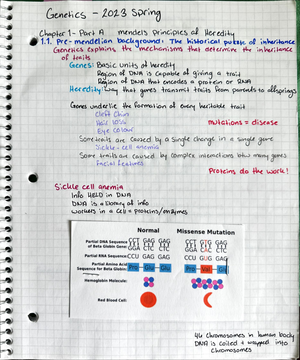 Genetics - 2023 Spring
Chapter 1 - Part A mendel's Principles of Heredity
1.1. Pre-mendelian background: The historical puzzle of inheritance
Genetics explains the mechanisms that determine the inheritance
of traits
Genes: Basic units of heredity
Region of DNA is capable of giving a trait
Region of DNA that encodes a protein or RNA
Heredity: way that genes transmit traits from parents to offsprings
Genes underlie the formation of every heritable trait
Cleft Chin
Hair loss
Eye colour
mutations = disease
Some traits are caused by a single change in a single gene
Sickle-cell anemia
Some traits are caused by complex interactions btw many genes
Facial features
Proteins do the work!
Sickle cell anemia
Info HELD in DNA
DNA is a library of info
Workers in a cell = proteins/enzymes
Normal Missense Mutation
Partial DNA Sequence of Beta Globin Gene:
CCT GAG GAG
GGA CTC CTC
CCT GTG GAG
GGA CAC CTC
Partial RNA Sequence: CCU GAG GAG CCU GUG GAG
Partial Amino Acid Sequence for Beta Globin: Pro Glu Glu Pro Val Glu
Hemoglobin Molecule:
Red Blood Cell:
46 Chromosomes in human body
DNA is coiled & wrapped into
Chromosomes